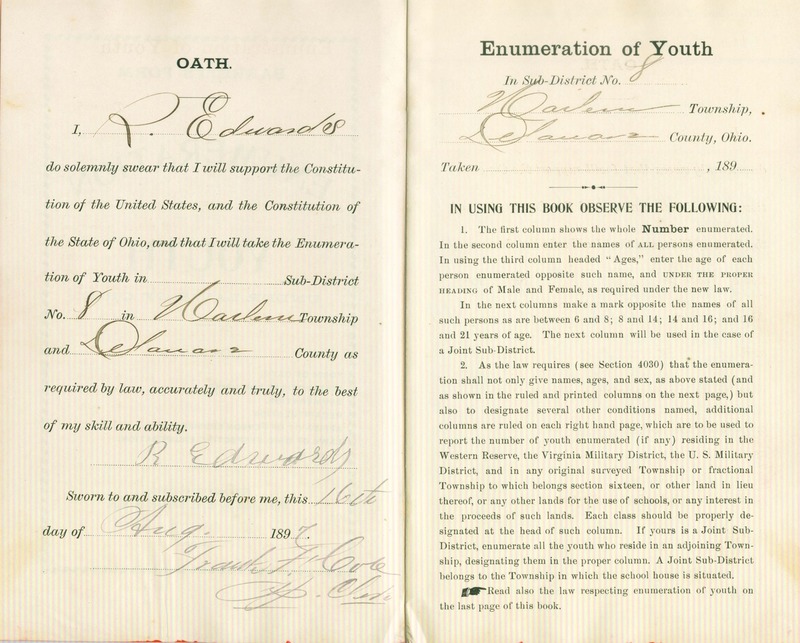 OATH.
I, R. Edwards
do solemnly swear that I will support the Constitu-
tion of the United States, and the Constitution of
the State of Ohio, and that I will take the Enumera-
tion of Youth in Sub-District
No. 8 in Harlem Township
and Delaware County as
required by law, accurately and truly, to the best
of my skill and ability.
R Edwards
Sworn to and subscribed before me, this 16th
day of Aug. 1897.
Frank F. Cole
Enumeration of Youth
In Sub-District No. 8
Harlem Township,
Delaware County, Ohio.
Taken , 189
IN USING THIS BOOK OBSERVE THE FOLLOWING:
1. The first column shows the whole Number enumerated.
In the second column enter the names of ALL persons enumerated.
In using the third column headed "Ages," enter the age of each
person enumerated opposite such name, and UNDER THE PROPER
HEADING of Male and Female, as required under the new law.
In the next columns make a mark opposite the names of all
such persons as are between 6 and 8; 8 and 14; 14 and 16; and 16
and 21 years of age. The next column will be used in the case of
a Joint Sub-District.
2. As the law requires (see Section 4030) that the enumera-
tion shall not only give names, ages, and sex, as above stated (and
as shown in the ruled and printed columns on the next page,) but
also to designate several other conditions named, additional
columns are ruled on each right hand page, which are to be used to
report the number of youth enumerated (if any) residing in the
Western Reserve, the Virginia Military District, the U. S. Military
District, and in any original surveyed Township or fractional
Township to which belongs section sixteen, or other land in lieu
thereof, or any other lands for the use of schools, or any interest in
the proceeds of such lands. Each class should be properly de-
signated at the head of such column. If yours is a Joint Sub-
District, enumerate all the youth who reside in an adjoining Town-
ship, designating them in the proper column. A Joint Sub-District
belongs to the Township in which the school house is situated.
Read also the law respecting enumeration of youth on
the last page of this book.